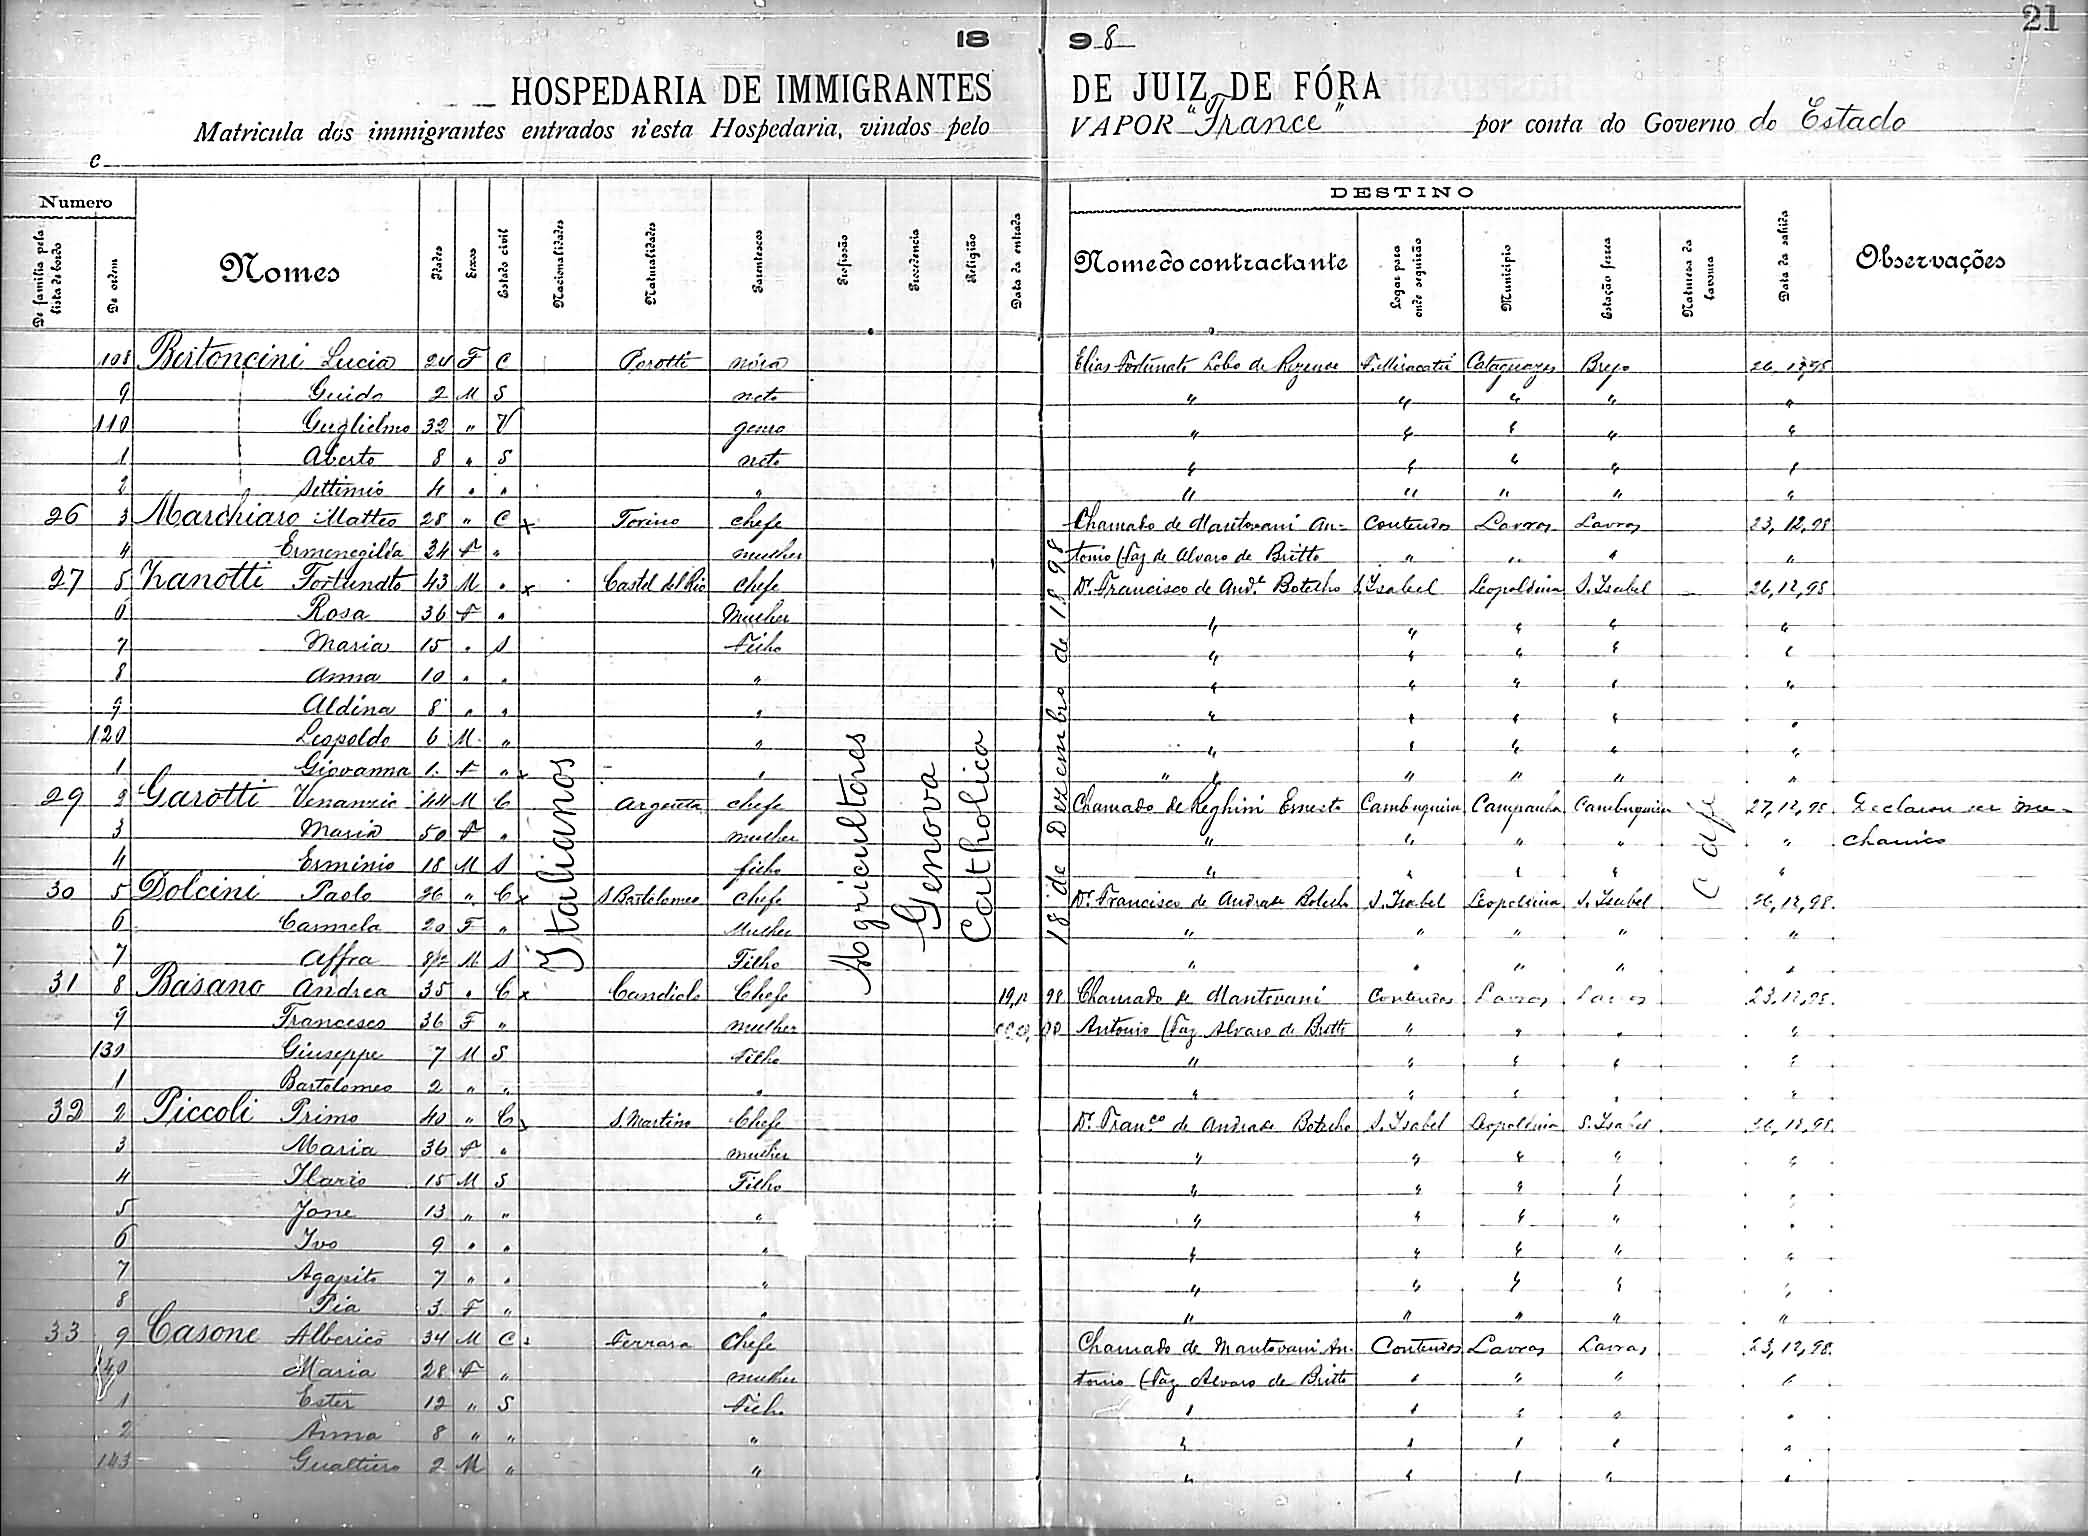 21
18 98
HOSPEDARIA DE IMMIGRANTES DE JUIZ DE FÓRA
Matricula dos immigrantes entrados n'esta Hospedaria, vindos pelo VAPOR "France" por conta do Governo do Estado
e
DESTINO
Numero
De familia pela lista de bordo De ordem Nomes Idades Sexos Estado civil Nacionalidades Naturalidades Parentescos Profissão Procedencia Religião Data da entrada Nome do contractante Logar para onde seguirão Municipio Estação ferrea Natureza da lavoura Data da sahida Observações
108 Bertoncini Lucia 24 F C Porotti nóra Elias Fortunato Lobo de Rezende Cataguazes Brejo
9 Guido 2 M S neto " " " " "
110 Guglielmo 32 " V genro " " " " "
1 Aberto 8 " S neto " " " " "
2 Settimio 4 " " " " " " " "
26 3 Marchiaro Matteo 28 " C x Torino chefe Chamado de Mantovani An= Contendas Lavras Lavras 23,12,98
4 Ermenegilda 34 F " mulher tonio (Faz de Alvaro de Britto " " " "
27 5 Zanotti Fortunato 43 M " x Castel del Rio chefe Dr. Francisco de And.e Botelho S. Isabel Leopoldina S. Isabel 26,12,98
6 Rosa 36 F " Mulher " " " " "
7 Maria 15 " S Filho " " " " "
8 Anna 10 " " " " " " " "
9 Aldina 8 " " " " " " " "
120 Leopoldo 6 M " " " " " " "
1 Giovanna 1 F " x " " " " " "
29 2 Garotti Venanzio 44 M C Argenta chefe Chamado de Reghini Ernesto Cambuquira Campanha Cambuquira 27,12,98 Declarou ser me-
3 Maria 50 F " mulher " " " " " chanico
4 Erminio 18 M S filho " " " " "
30 5 Dolcini Paolo 26 " C x S. Bartolomeo chefe Dr. Francisco de Andrade Botelho S. Isabel Leopoldina S. Isabel 26,12,98
6 Carmela 20 F " Mulher " " " " "
7 Affra M S Filho " " " " "
31 8 Basano Andrea 35 " C x Candiolo Chefe 19,12 98 Chamado de Mantovani Contendas Lavras Lavras 23,12,98
9 Francesco 36 F " mulher " " 98 Antonio (Faz Alvaro de Britto " " " "
130 Giuseppe 7 M S Filho " " " " "
1 Bartolomeo 2 " " " " " " " "
32 2 Piccoli Primo 40 " C x S. Martino Chefe Dr. Fran.co de Andrade Botelho S. Isabel Leopoldina S. Isabel 26,12,98
3 Maria 36 F " mulher " " " " "
4 Ilario 15 M S Filho " " " " "
5 Jone 13 " " " " " " " "
6 Ivo 9 " " " " " " " "
7 Agapito 7 " " " " " " " "
8 Pia 3 F " " " " " " "
33 9 Casone Alberico 34 M C x Ferrara Chefe Chamado de Mantovani An- Contendas Lavras Lavras 23,12,98
140 Maria 28 F " mulher tonio (Faz Alvaro de Britto " " " "
1 Ester 12 " S Filho " " " " "
2 Anna 8 " " " " " " " "
143 Gualtiero 2 M " " " " " " "
Italianos
Agricultores
Genova
Catholica
18 de Dezembro de 1898
Café